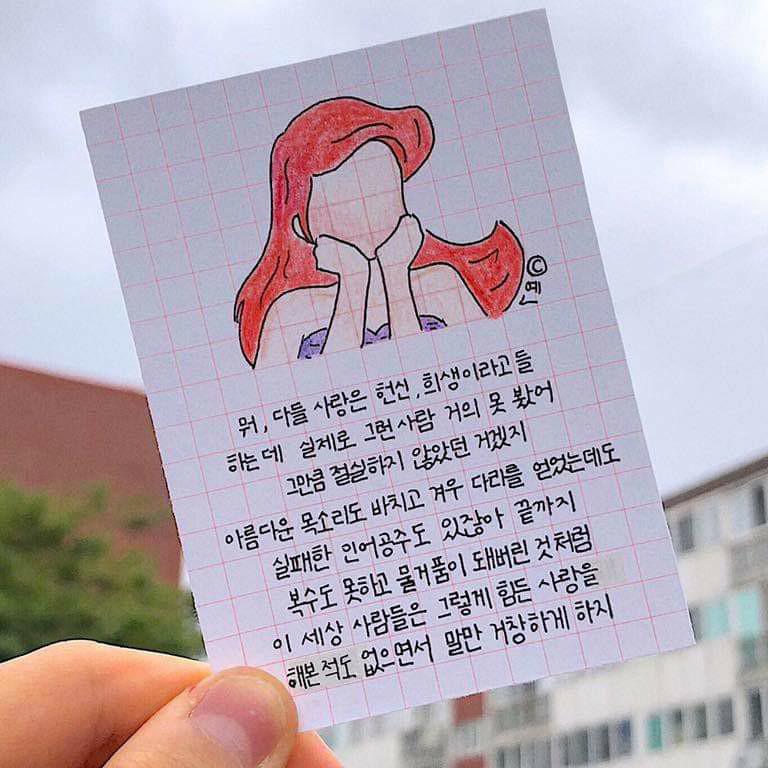 © 예
뭐, 다들 사랑은 헌신, 희생이라고들
하는데 실제로 그런 사람 거의 못 봤어
그만큼 절실하지 않았던 거겠지
아름다운 목소리도 바치고 겨우 다리를 얻었는데도
실패한 인어공주도 있잖아 끝까지
복수도 못하고 물거품이 돼버린 것처럼
이 세상 사람들은 그렇게 힘든 사랑을
해본 적도 없으면서 말만 거창하게 하지